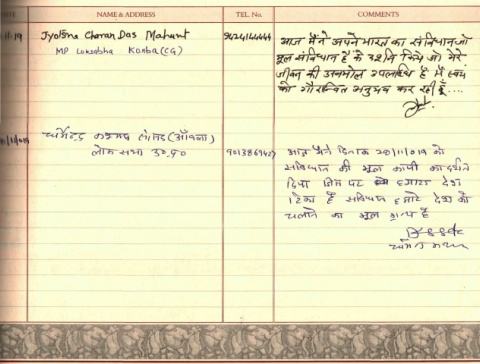 DATE NAME & ADDRESS TEL. No. COMMENTS
11.19 Jyotsna Charan Das Mahant
MP Loksabha Korba (CG)
आज मैंने अपने भारत का संविधान जो
मूल संविधान है के दर्शन किये जो मेरे
जीवन की अनमोल उपलब्धि है मैं स्वयं
को गौरान्वित अनुभव कर रही हूँ....
धर्मेन्द्र कश्यप (आँवला)
लोक सभा उ०प्र०
आज मैंने दिनांक 20/11/019 को
संविधान की मूल कापी का दर्शन
किया जिस पर हमारा देश
टिका है संविधान हमारे देश को
चलाने का मूल ग्रन्थ है